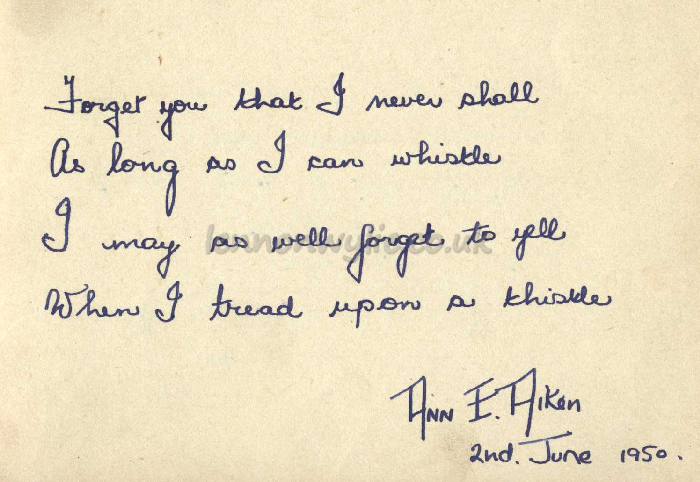 Forget you that I never shall
As long as I can whistle
I may as well forget to yell
When I tread upon a thistle
Ann E. Aiken
2nd. June 1950.
lennonwylie.co.uk